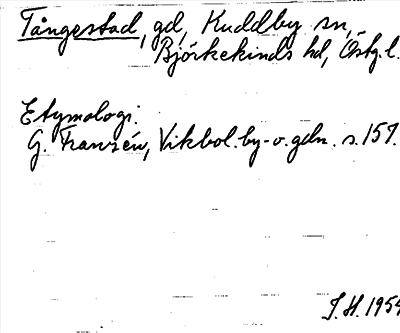 Tångestad, gd, Kuddby sn,
Björkekinds hd, Östg.l.
Etymologi.
G. Franzén, Vikbol. by- o. gdn. s. 157.
J.H. 1954